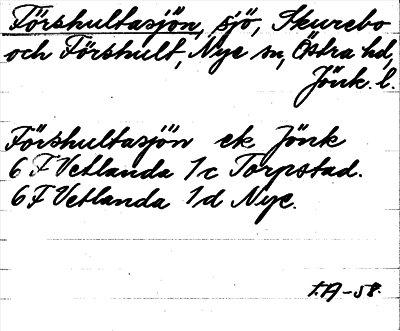 Förshultasjön, sjö, Skurebo
och Förshult, Nye sn, Östra hd,
Jönk. l.
Förshultasjön ek Jönk
6 F Vetlanda 1c Torpstad.
6 F Vetlanda 1d Nye.